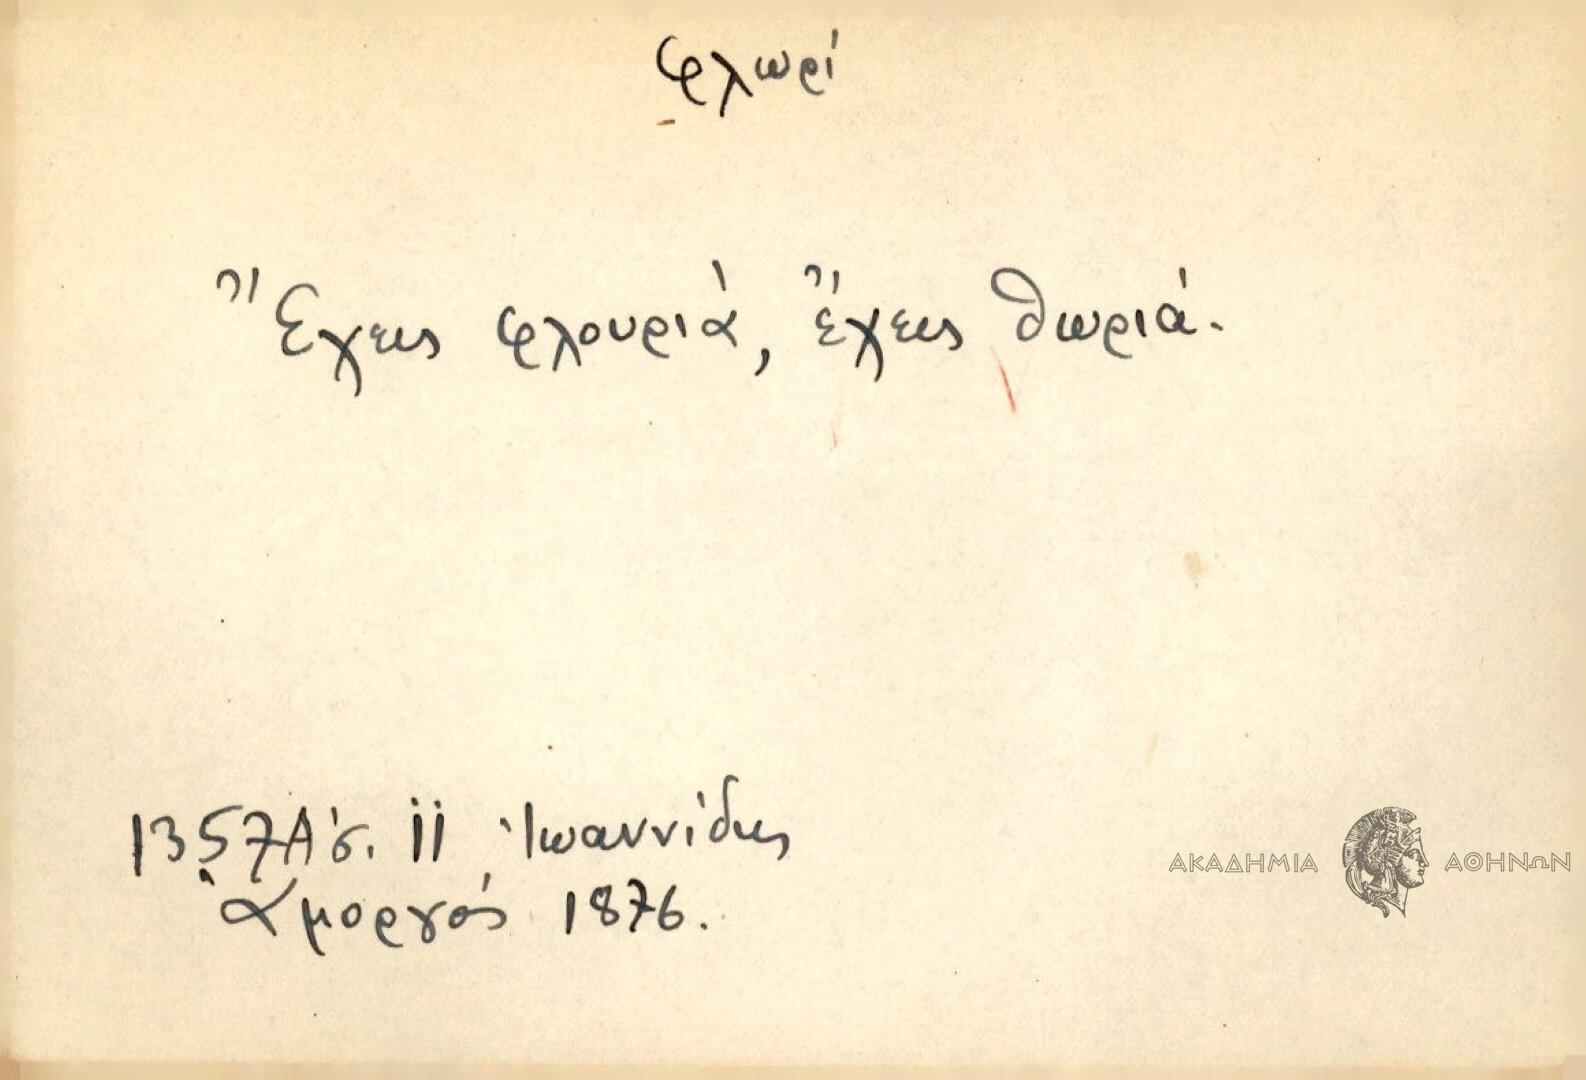 φλωρί
Ἔχεις φλουριά, ἔχεις θωριά.
1357 Α'σ. 11 Ἰωαννίδης
Ἀμοργός 1876.
ΑΚΑΔΗΜΙΑ ΑΘΗΝΩΝ